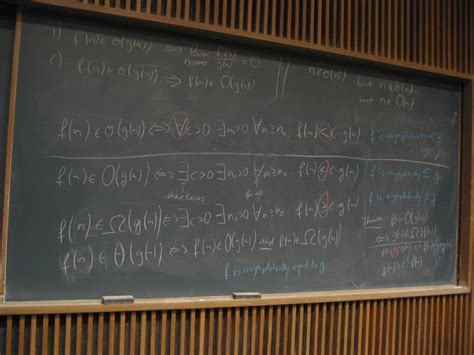 1) f(n) ∈ o(g(n)) ⇔ lim f(n)/g(n) = 0
n→∞
2) f(n) ∈ o(g(n)) ⇒ f(n) ∈ O(g(n))
but
n ∈ O(n)
f(n) ∈ o(g(n)) ⇔ ∀c>0 ∃n₀>0 ∀n≥n₀. f(n) < c·g(n) f is asymptotically < g
f(n) ∈ O(g(n)) ⇔ ∃c>0 ∃n₀>0 ∀n≥n₀. f(n) ≤ c·g(n) f is asymptotically ≤ g
there exists for all
f(n) ∈ Ω(g(n)) ⇔ ∃c>0 ∃n₀>0 ∀n≥n₀. f(n) ≥ c·g(n) f is asymptotically ≥ g
f(n) ∈ Θ(g(n)) ⇔ f(n) ∈ O(g(n)) and f(n) ∈ Ω(g(n))
f is asymptotically equal to g
Theorem